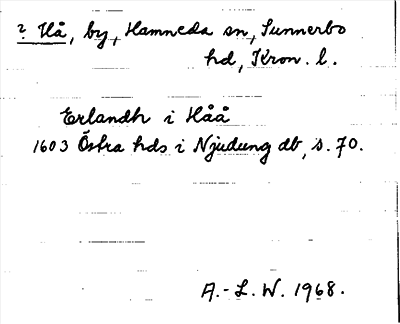 ? Hå, by, Hamneda sn, Sunnerbo
hd, Kron. l.
Erlandh i Håå
1603 Östra hds i Njudung db, s. 70.
A.-L. W. 1968.